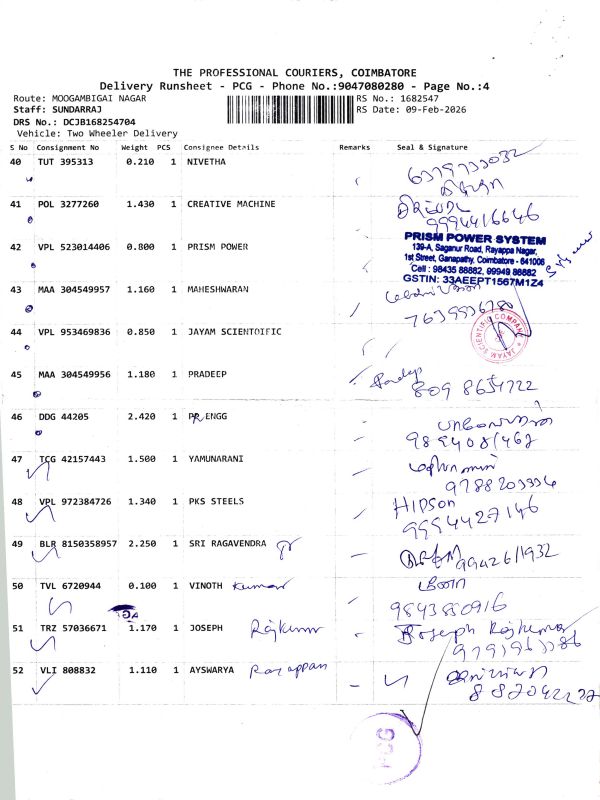 THE PROFESSIONAL COURIERS, COIMBATORE
Delivery Runsheet - PCG - Phone No.:9047080280 - Page No.:4
Route: MOOGAMBIGAI NAGAR
RS No.: 1682547
Staff: SUNDARRAJ
RS Date: 09-Feb-2026
DRS No.: DCJB168254704
Vehicle: Two Wheeler Delivery
S No Consignment No Weight PCS Consignee Details Remarks Seal & Signature
40 TUT 395313 0.210 1 NIVETHA
6379733032
41 POL 3277260 1.430 1 CREATIVE MACHINE
9994416646
42 VPL 523014406 0.800 1 PRISM POWER
PRISM POWER SYSTEM
139-A, Saganur Road, Rayappa Nagar,
1st Street, Ganapathy, Coimbatore - 641006
Cell : 98435 88882, 99949 86882
GSTIN: 33AEEPT1567M1Z4
43 MAA 304549957 1.160 1 MAHESHWARAN
7639936780
44 VPL 953469836 0.850 1 JAYAM SCIENTOIFIC
JAYAM SCIENTIFIC COMPANY
45 MAA 304549956 1.180 1 PRADEEP
Pradeep
809 8654722
46 DDG 44205 2.420 1 PR ENGG
9894081462
47 TCG 42157443 1.500 1 YAMUNARANI
9788203334
48 VPL 972384726 1.340 1 PKS STEELS
HIPSON
9994427146
49 BLR 8150358957 2.250 1 SRI RAGAVENDRA
9942611932
50 TVL 6720944 0.100 1 VINOTH Kumar
9843880916
51 TRZ 57036671 1.170 1 JOSEPH Rajkumar
Joseph Rajkumar
52 VLI 808832 1.110 1 AYSWARYA Rayappan
PCG